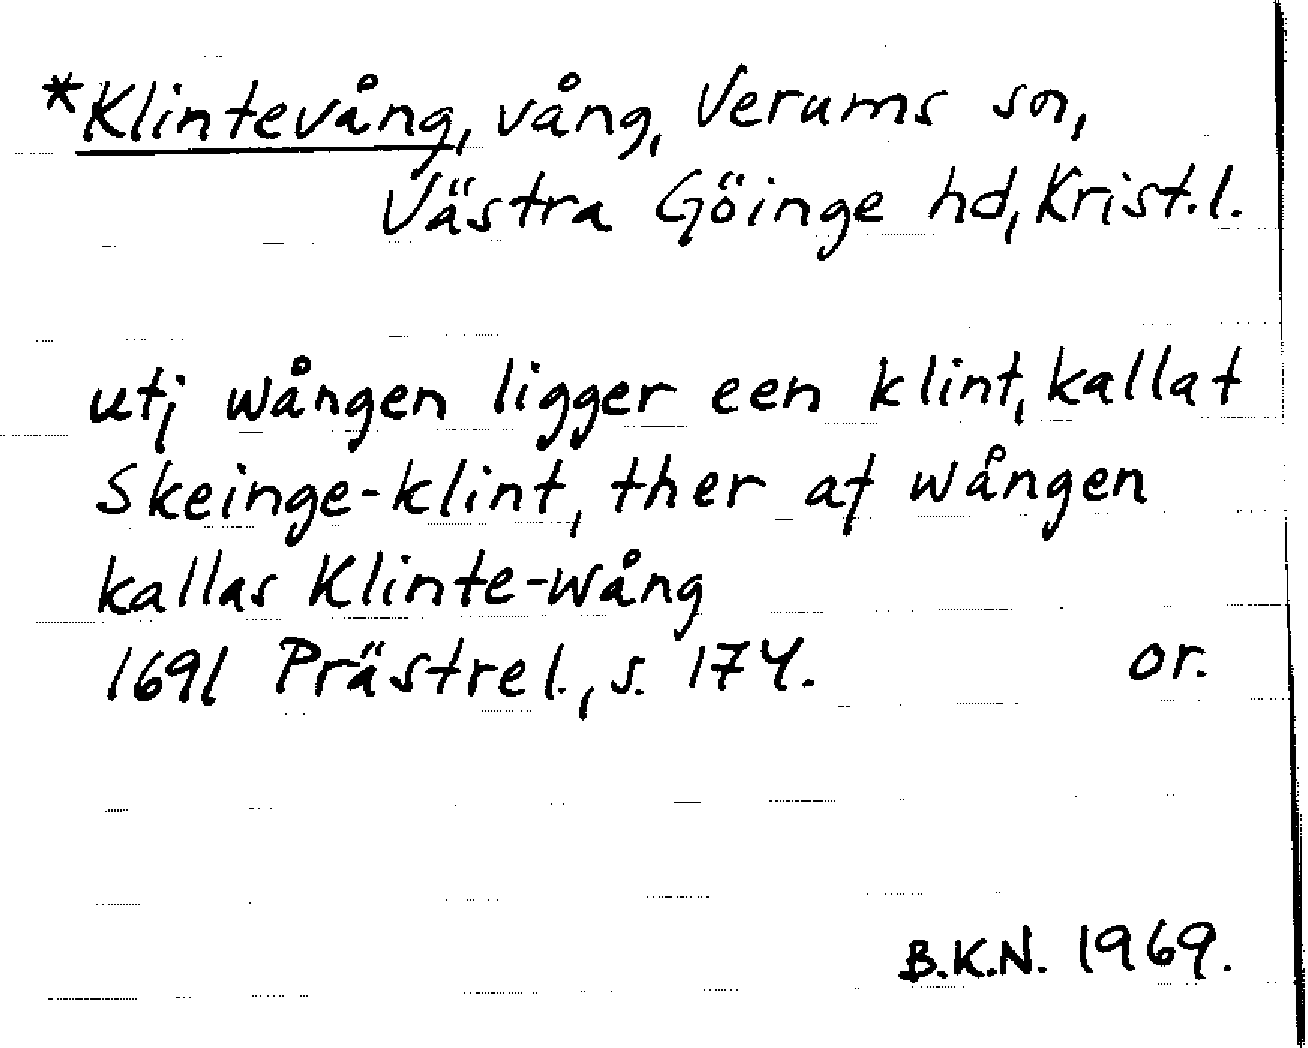 *Klintevång, vång, Verums sn,
Västra Göinge hd, Krist.l.
utj wången ligger een klint, kallat
Skeinge-klint, ther af wången
kallas Klinte-wång
1691 Prästrel., s. 174. or.
B.K.N. 1969.